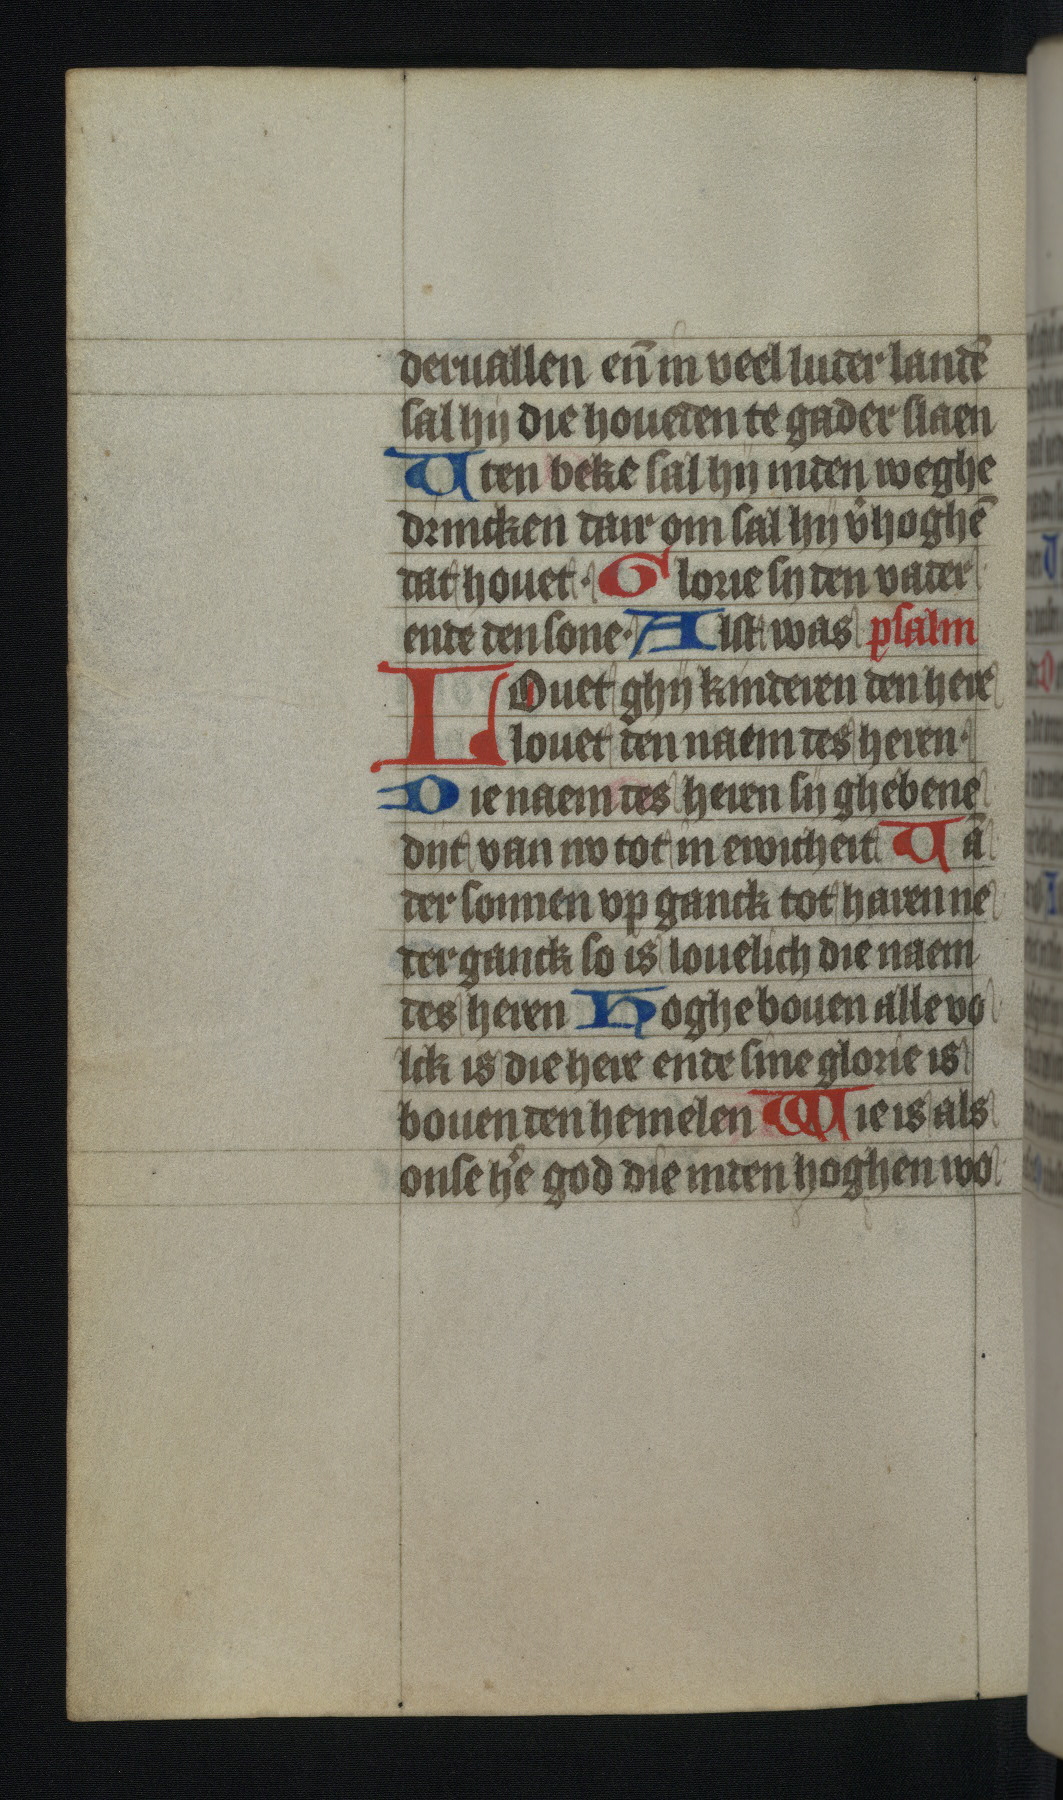 deruallen en̄ in veel luder landē
sal hij die houeden te gader slaen
Uten beke sal hij inden weghe
drincken dair om sal hij v̓hoghē
dat houet · Glorie sy den vader
ende den sone · Alst was psalm
LOuet ghij kinderen den here
louet den naem des heren ·
Die naem des heren sij ghebene
dijt van nv tot in ewicheit Uā
der sonnen vp ganck tot haren ne
der ganck so is louelich die naem
des heren Hoghe bouen alle vo
lck is die here ende sine glorie is
bouen den hemelen Wie is als
onse he̓ god die inden hoghen wo